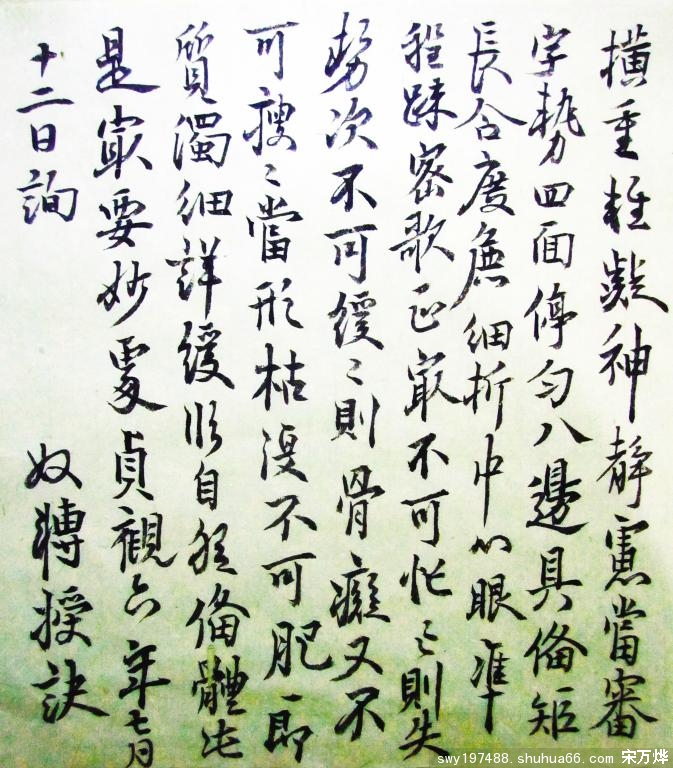 橫重輕凝神靜慮當審
字勢四面停勻八邊具備短
長合度麁細折中心眼準
程踈密欹正最不可忙〻則失
勢次不可緩〻則骨癡又不
可瘦〻當形枯復不可肥〻即
質濁細詳緩臨自然備體此
是最要妙處貞觀六年七月
十二日詢 奴轉授訣
swy197488.shuhua66.com 宋万烨